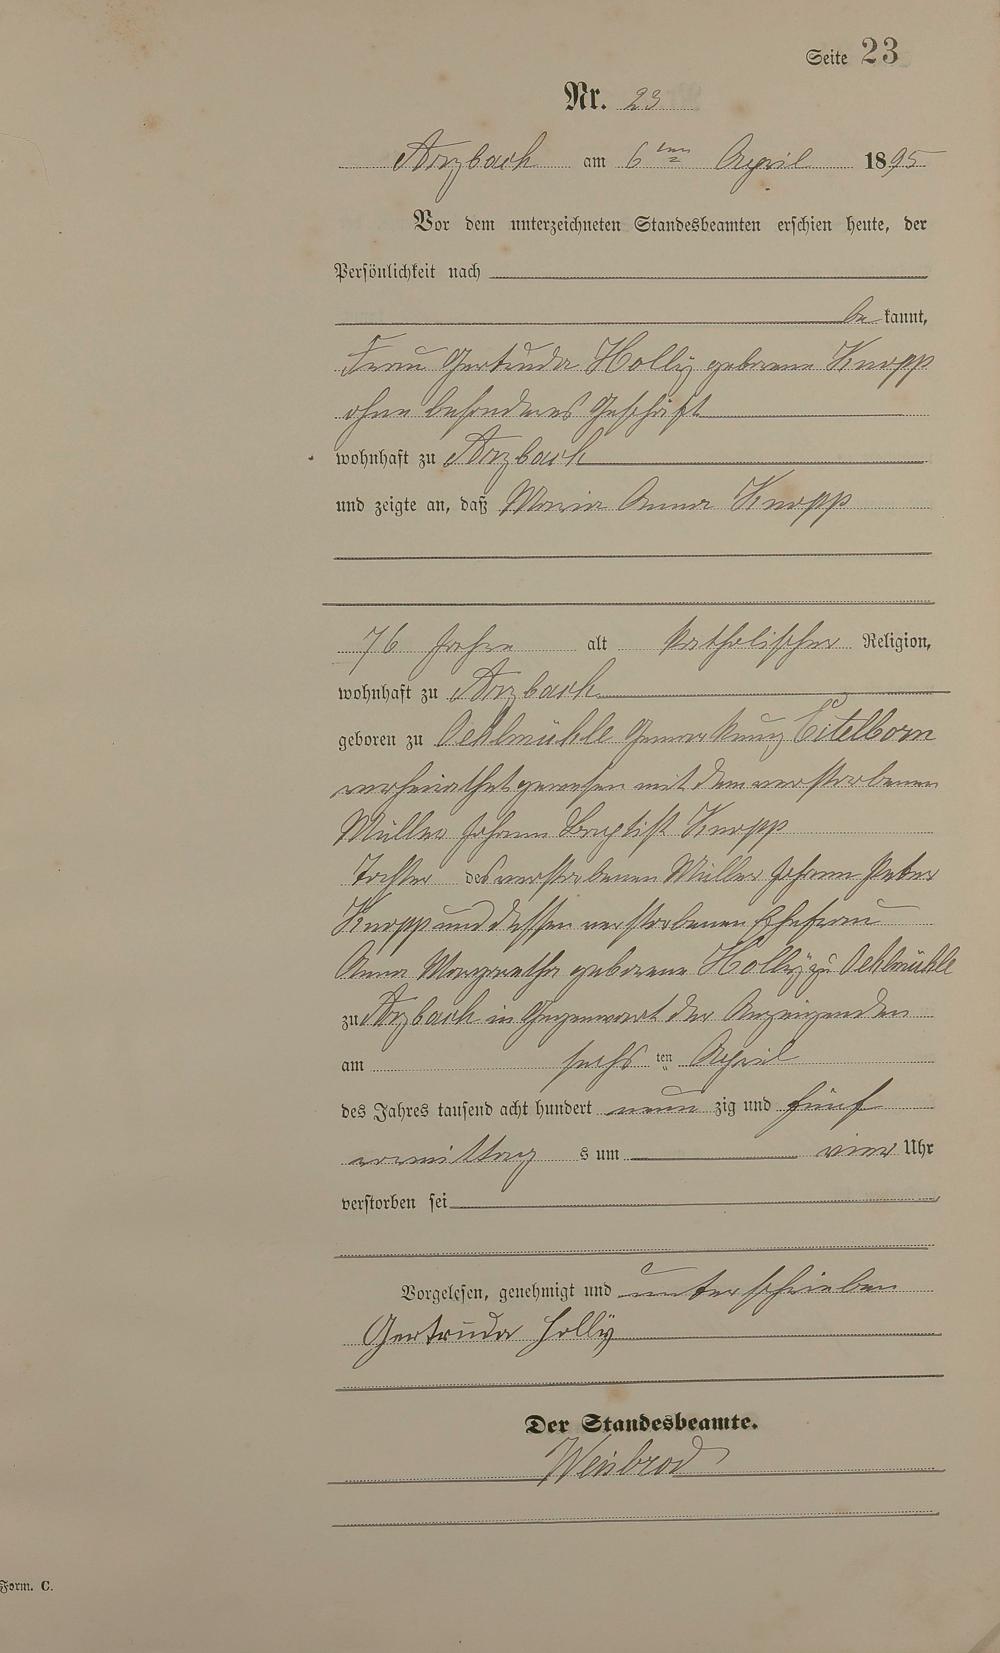 Seite 23
Nr. 23
Arzbach am 6ten April 1895
Vor dem unterzeichneten Standesbeamten erschien heute, der
Persönlichkeit nach
be kannt,
Frau Gertruda Holly geborene Knopp
ohne besonderes Geschäft
wohnhaft zu Arzbach
und zeigte an, daß Maria Anna Knopp
76 Jahre alt katholischer Religion,
wohnhaft zu Arzbach
geboren zu Oehlmühle Gemarkung Eitelborn
verheirathet gewesen mit dem verstorbenen
Müller Johann Baptist Knopp
Tochter des verstorbenen Müller Johann Peter
Knopp und dessen verstorbenen Ehefrau
Anna Margaretha geborene Holly zu Oehlmühle
zu Arzbach in Gegenwart der Anzeigenden
am sechs ten April
des Jahres tausend acht hundert neun zig und fünf
vormittag s um vier Uhr
verstorben sei
Vorgelesen, genehmigt und unterschrieben
Gertruda Holly
Der Standesbeamte.
Weisbrod
Form. C.